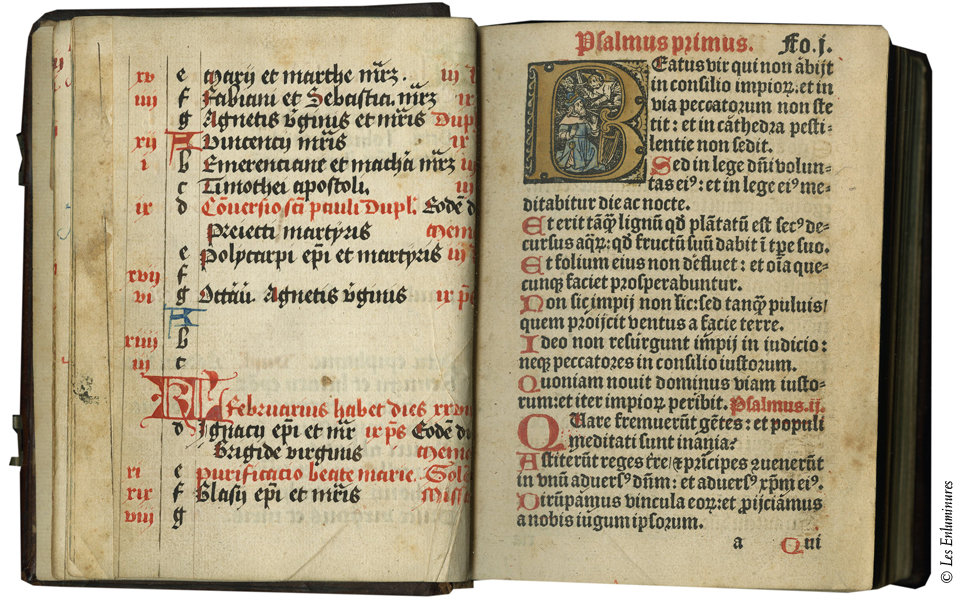 xv e Marij et marthe mr̄ꝫ. iij
iiij f Fabiani et Sebastia. mr̄ꝫ ix
g Agnetis v̄ginis et mr̄is Dupl
xij A Vincency mr̄is ix
i b Emerenciane et machā mr̄ꝫ iij
c Timothei apostoli. iij
ix d Cōversio sc̄i pauli Dupl. Eodē d
Preiecti martyris Mem
e Polycarpi ep̄i et martyris iij
xvij f
vi g Octāu. Agnetis v̄ginis ix p̄s
A
xiiij b
iij c
KL
Februarius habet dies xxvii
d Ignacij ep̄i et mr̄ ix p̄s Eodē di
Brigide virginis Mem
xi e Purificatio beate marie. Sole
xix f Blasij ep̄i et mr̄is Missa
viij g
Psalmus primus. Fo. j.
BEatus vir qui non ābijt
in consilio impioꝝ: et in
via peccatorum non ste
tit: et in cāthedra pesti-
lentie non sedit.
Sed in lege dn̄i volun-
tas eiꝰ: et in lege eiꝰ me-
ditabitur die ac nocte.
Et erit tāqꝫ lignū qd̄ plātatū est secꝰ de-
cursus aqꝝ: qd̄ fructū suū dabit ī tp̄e suo.
Et folium eius non defluet: et oīa que-
cunqꝫ faciet prosperabuntur.
Non sic impij non sic: sed tanqꝫ puluis/
quem proijcit ventus a facie terre.
Ideo non resurgunt impij in iudicio:
neqꝫ peccatores in consilio iustorum.
Quoniam nouit dominus viam iusto-
rum: et iter impioꝝ peribit. Psalmus. ij.
QUare fremuerūt gētes: et populi
meditati sunt inania?
Astiterūt reges tr̄e/ ⁊ prīcipes ꝯuenerūt
in vnū aduersꝰ dn̄m: et aduersꝰ xp̄m eiꝰ.
Dirūpamus vincula eoꝝ: et ꝓijciamus
a nobis iugum ipsorum.
a Qui
© Les Enluminures